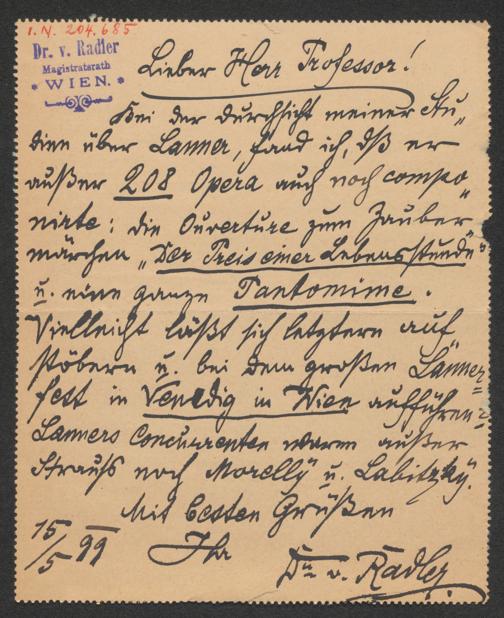 I.N. 204.685
Dr. v. Radler
Magistratsrath
* WIEN. *
Lieber Herr Professor!
Bei der Durchsicht meiner Stu„
dien über Lanner, fand ich, dß er
außer 208 Opera auch noch compo„
nirte: die Ouverture zum Zauber
märchen „Der Preis einer Lebensstunde"
u. eine ganze Pantomime.
Vielleicht läßt sich letztern auf
stöbern u. bei dem großen Lanner=
fest in Venedig in Wien aufführen.
Lanners Concurrenten waren außer
Strauß noch Morelly u. Labitzky.
Mit besten Grüßen
15/5 99
Ihr
Dr. v. Radler